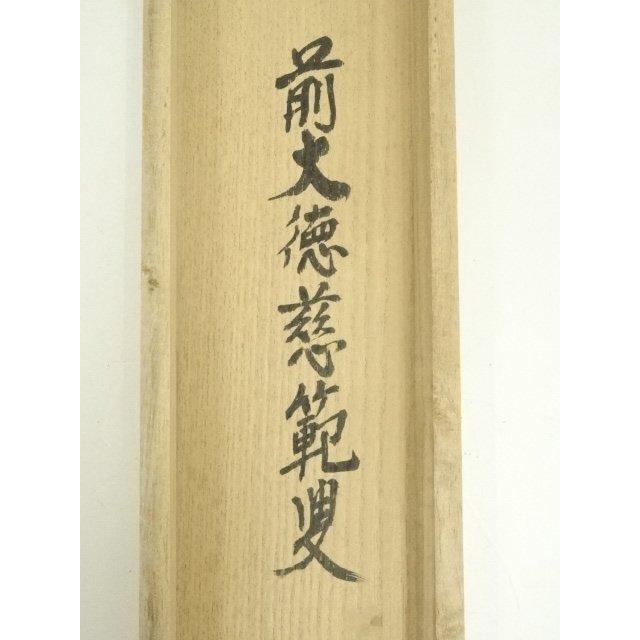 前大徳慈範叟